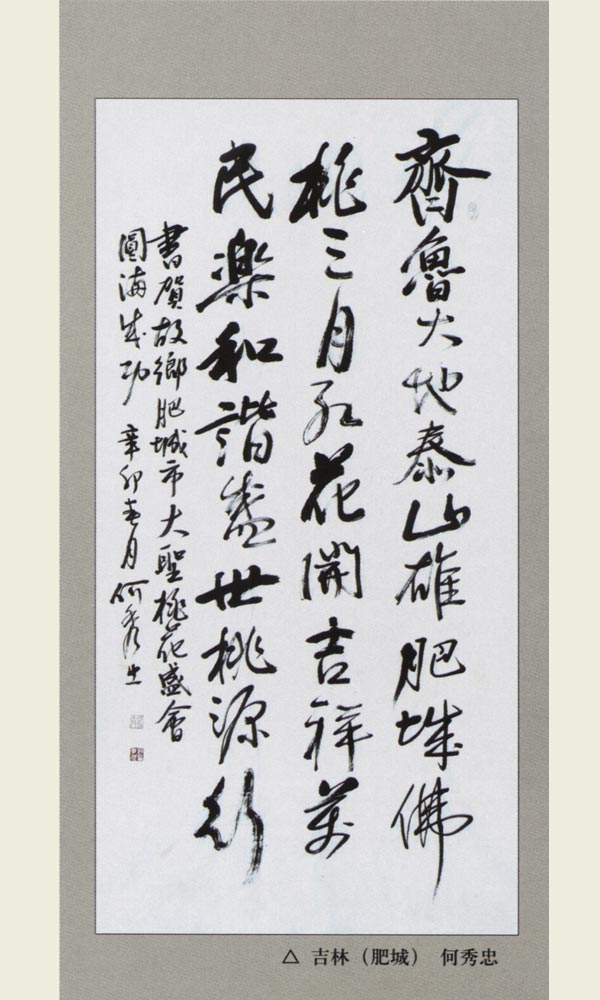 齊魯大地泰山雄肥城佛
桃三月红花開吉祥萬
民樂和諧盛世桃源行
書賀故鄉肥城市大聖桃花盛會
圓滿成功 辛卯春月何秀忠
△ 吉林（肥城） 何秀忠